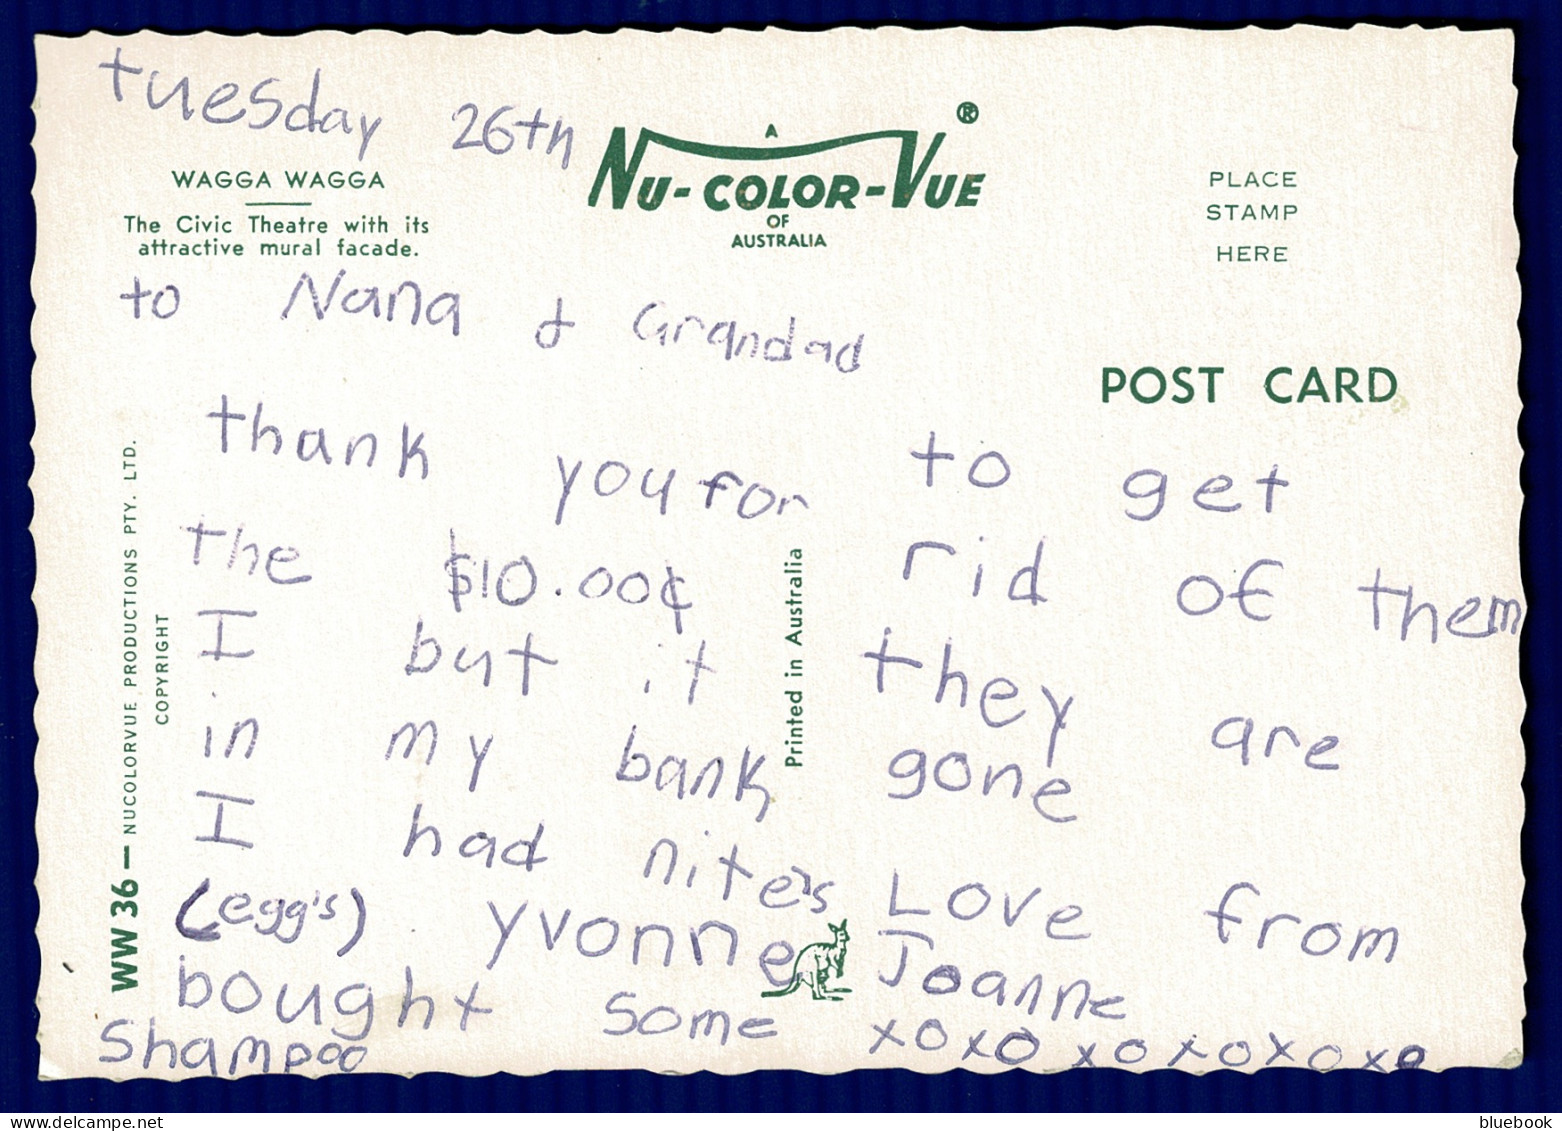 tuesday 26th
A
NU-COLOR-VUE ®
OF
AUSTRALIA
WAGGA WAGGA
The Civic Theatre with its
attractive mural facade.
PLACE
STAMP
HERE
POST CARD
to Nana & Grandad
thank you for
the $10.00¢
I but it
in my bank
I had nite's
(egg's) yvonne
bought some
shampoo
to get
rid of them
they are
gone
Love from
Joanne
xoxoxoxoxoxo
WW 36 — NUCOLORVUE PRODUCTIONS PTY. LTD.
COPYRIGHT
Printed in Australia
delcampe.net
bluebook